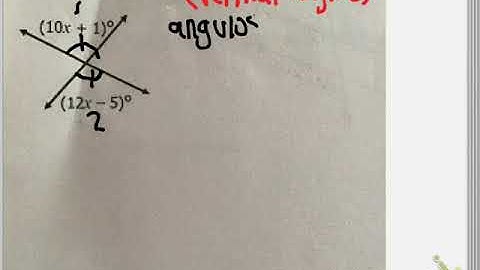 1
(10x + 1)º
angulos
(12x – 5)º
2